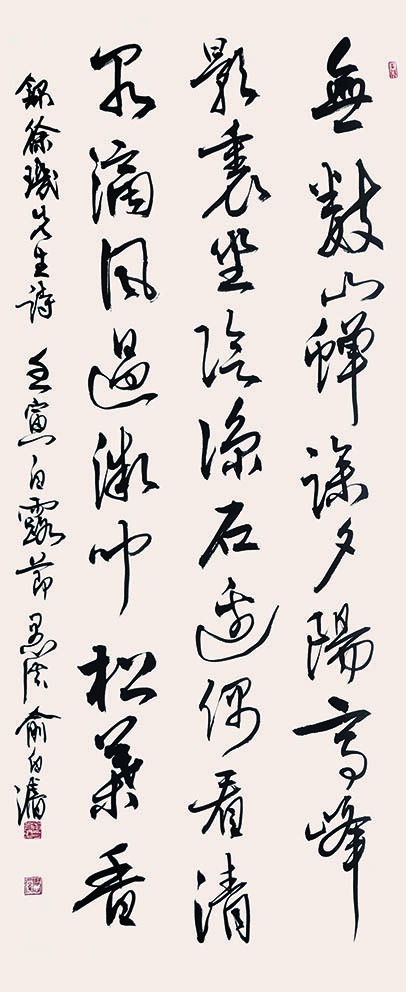 無數山蟬譟夕陽高峰
影裏坐陰涼石邊偶看清
泉滴風過微聞松葉香
録徐璣先生詩 壬寅白露節 俞白